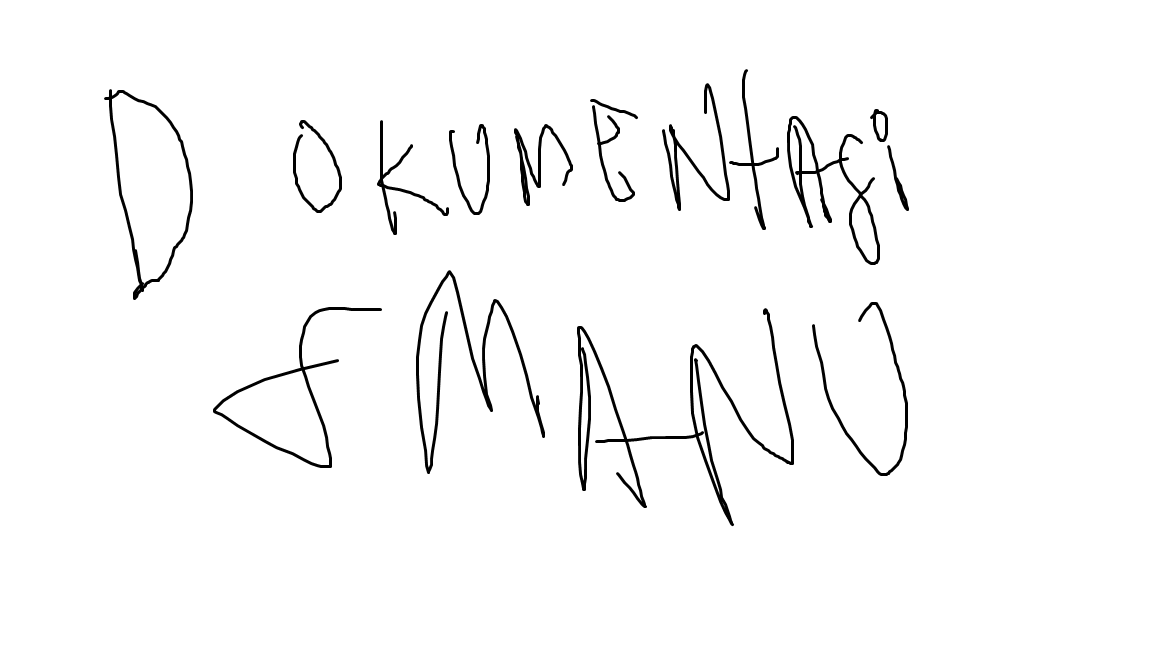 DOKUMENtAsi
SMANU